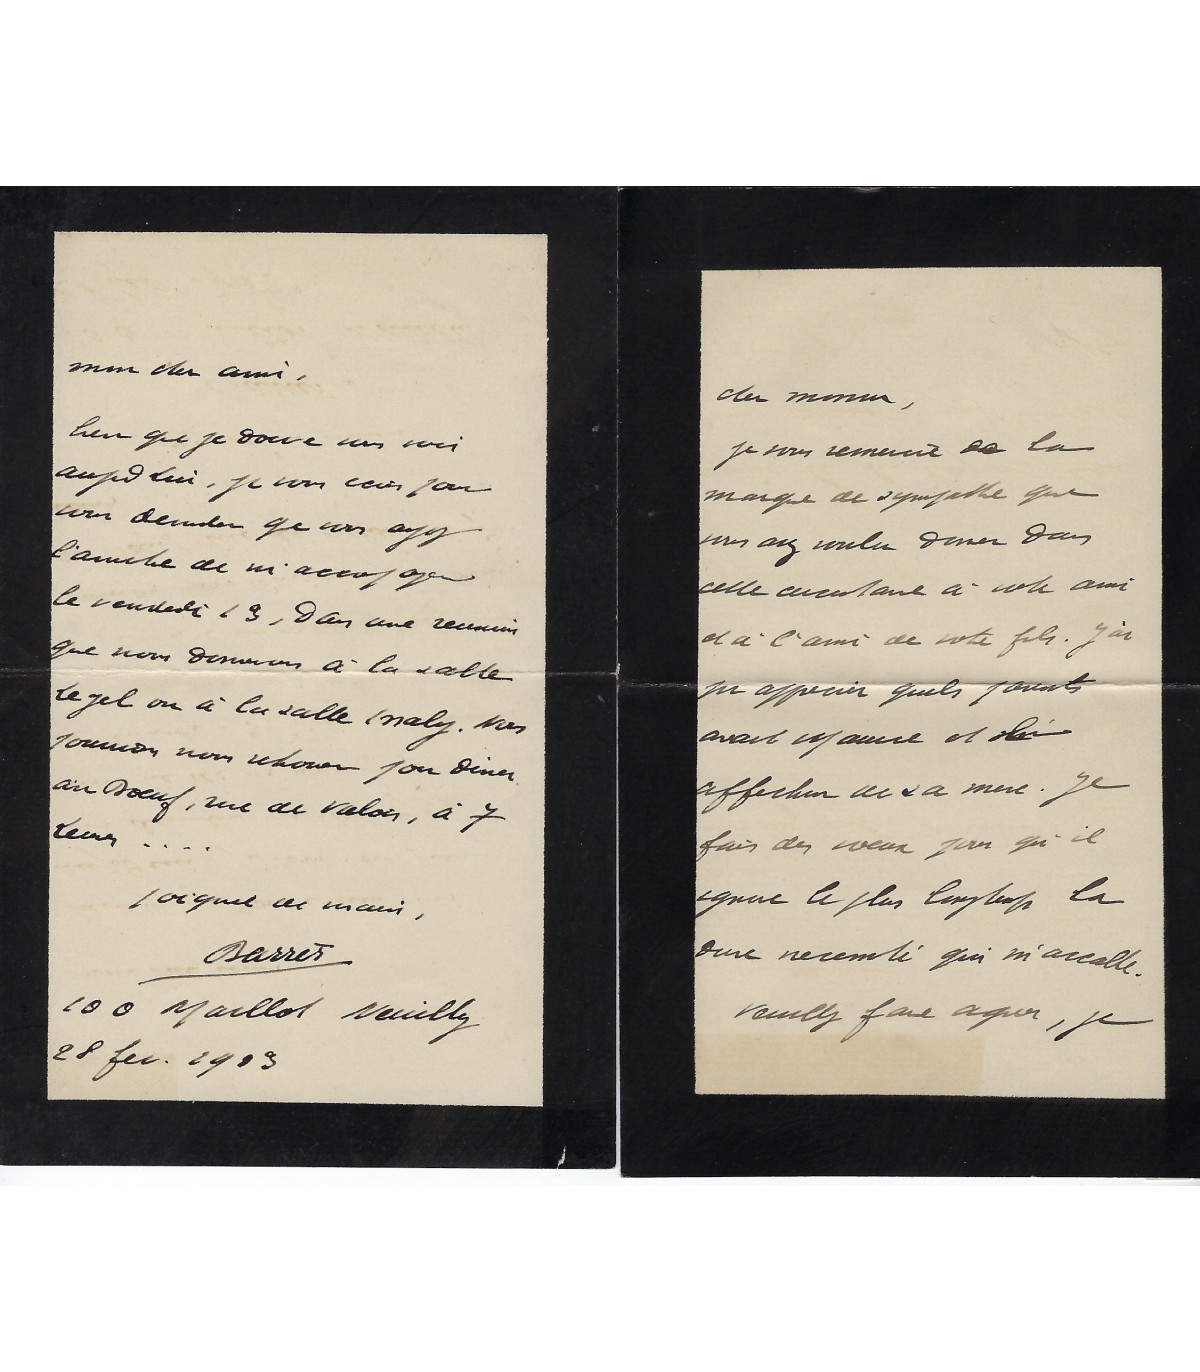 mon cher ami,
bien que je doive vous voir
aujourd'hui, je vous écris pour
vous demander que vous ayez
l'amitié de m'accompagner
le vendredi 13, dans une reunion
que nous donnerons à la salle
ou à la salle. Vous
pourriez nous retrouver pour diner
au Boeuf, rue de Valois, à 7
heures ....
poignée de main,
Barrès
100 Maillot Neuilly
28 fev. 1903
cher monsieur,
je vous remercie de la
marque de sympathie que
vous avez voulu donner dans
cette circonstance à votre ami
et à l'ami de votre fils. J'ai
pu apprécier quels parents
avait Maurice et
affection de sa mere. Je
fais des voeux pour qu'il
ignore le plus longtemps la
dure necessité qui m'accable.
Veuillez faire agréer, je